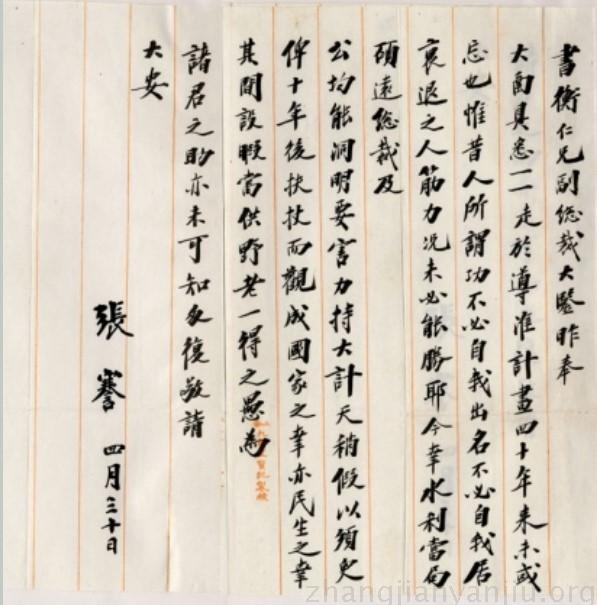 書衡仁兄副總裁大鑒昨奉
大函具悉一一走於導淮計畫四十年來未或
忘也惟昔人所謂功不必自我出名不必自我居
衰退之人筋力况未必能勝耶今幸水利當局
碩遠總裁及
公均能洞明要害力持大計天稍假以須臾
俾十年後扶杖而觀成國家之幸亦民生之幸
其間設暇當供野老一得之愚為
諸君之助亦未可知矣復敬請
大安
張謇 四月三十日
zhangjianyanjiu.org